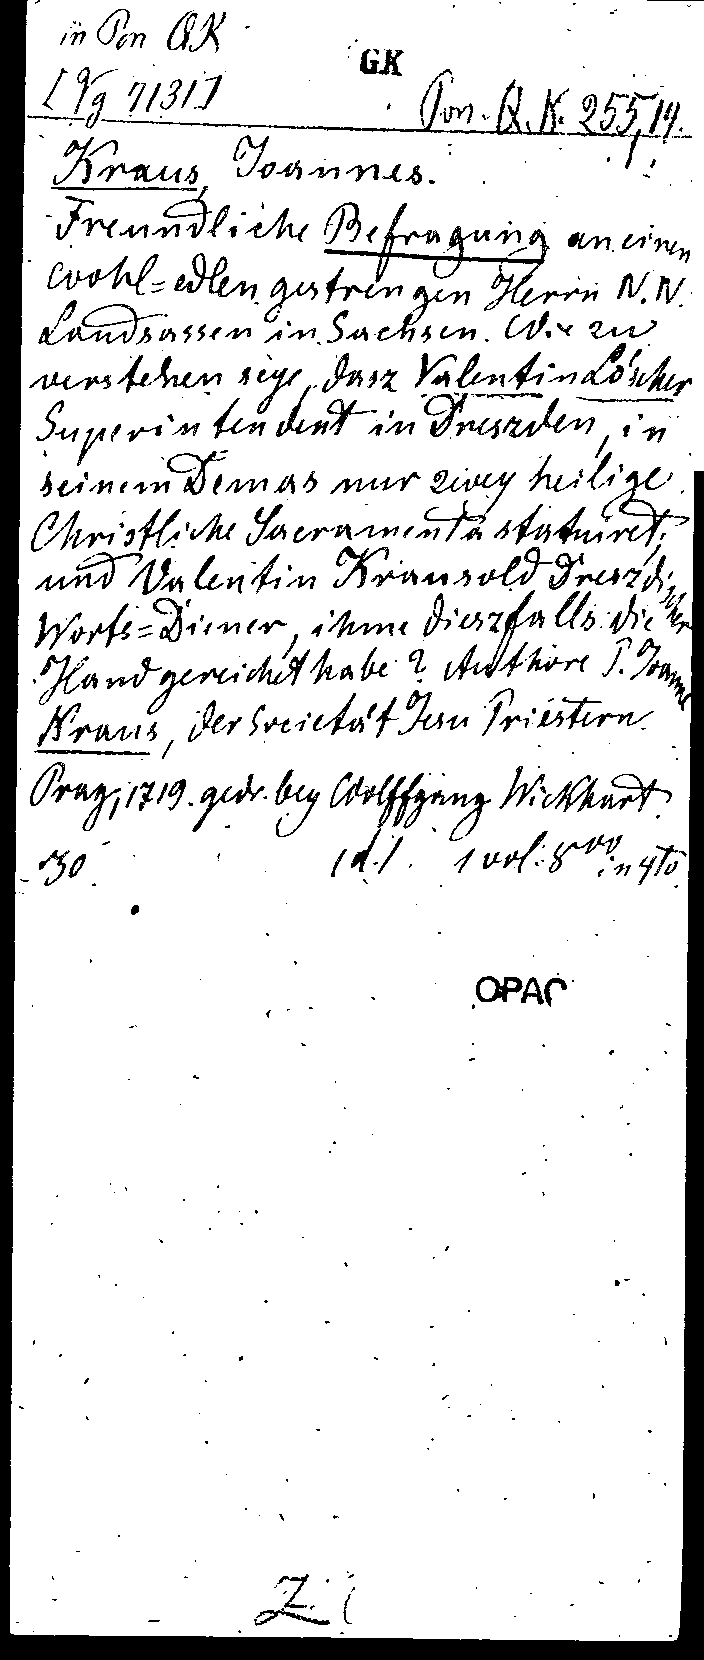 in Pon QK
GK
[Vg 7131]
Pon. Q. K. 255, 19.
Kraus, Joannes.
Freundliche Befragung an einen
wohl=edlen gestrengen Herrn N. N.
Landsassen in Sachsen. Wie zu
verstehen seye, dasz Valentin Löscher
Superintendent in Dreszden, in
seinem Demas nur zwey heilige
Christliche Sacramenta statuiret;
und Valentin Krausold Dreszdischer
Worts=Diener, ihme dieszfalls die
Hand gereichet habe? Authore P. Joanne
Kraus, der Societät Jesu Priestern.
Prag, 1719. gedr. bey Wolffgang Wickhart.
30. 1 vol. 8vo in 4to.
OPAC
Z